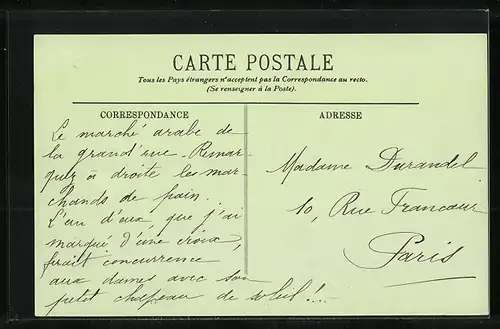 CARTE POSTALE
Tous les Pays étrangers n'acceptent pas la Correspondance au recto.
(Se renseigner à la Poste).
CORRESPONDANCE
Le marché arabe de
la grand'rue - Remar-
quez à droite les mar-
chands de pain.
L'un d'eux que j'ai
marqué d'une croix,
ferait concurrence
aux dames avec son
petit chapeau de soleil !...
ADRESSE
Madame Durandel
10, Rue Francœur
Paris